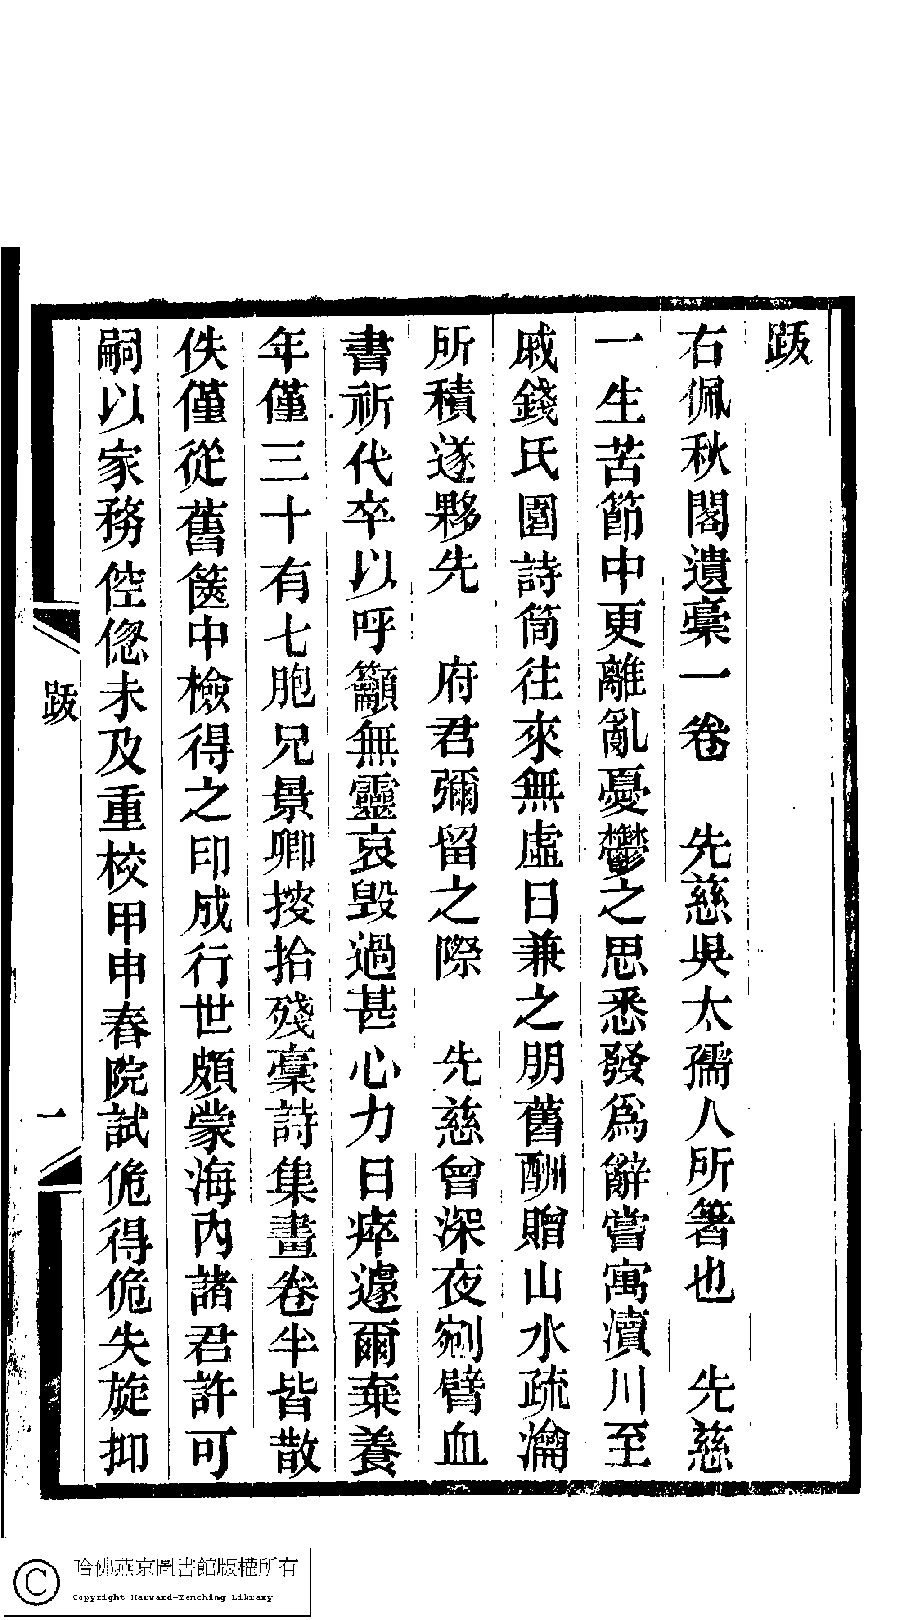 跋
右佩秋閣遺稾一卷　先慈吳太孺人所箸也　先慈
一生苦節中更離亂憂鬱之思悉發爲辭嘗寓瀆川至
戚錢氏園詩筒往來無虛日兼之朋舊酬贈山水疏瀹
所積遂夥先　府君彌留之際　先慈曾深夜剜臂血
書祈代卒以呼籲無靈哀毀過甚心力日瘁遽爾棄養
年僅三十有七胞兄景卿按拾殘稾詩集畫卷半皆散
佚僅從舊篋中檢得之印成行世頗蒙海內諸君許可
嗣以家務倥傯未及重校甲申春院試佹得佹失旋抑
跋
一
哈佛燕京圖書館版權所有
Copyright Harvard-Yenching Library